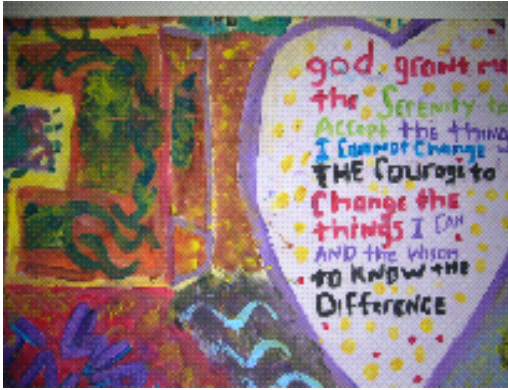 god. grant me
the Serenity to
Accept the thing
I Cannot Change
THE Courage to
Change the
things I CAN
AND the wisom
to KNOW THE
Difference